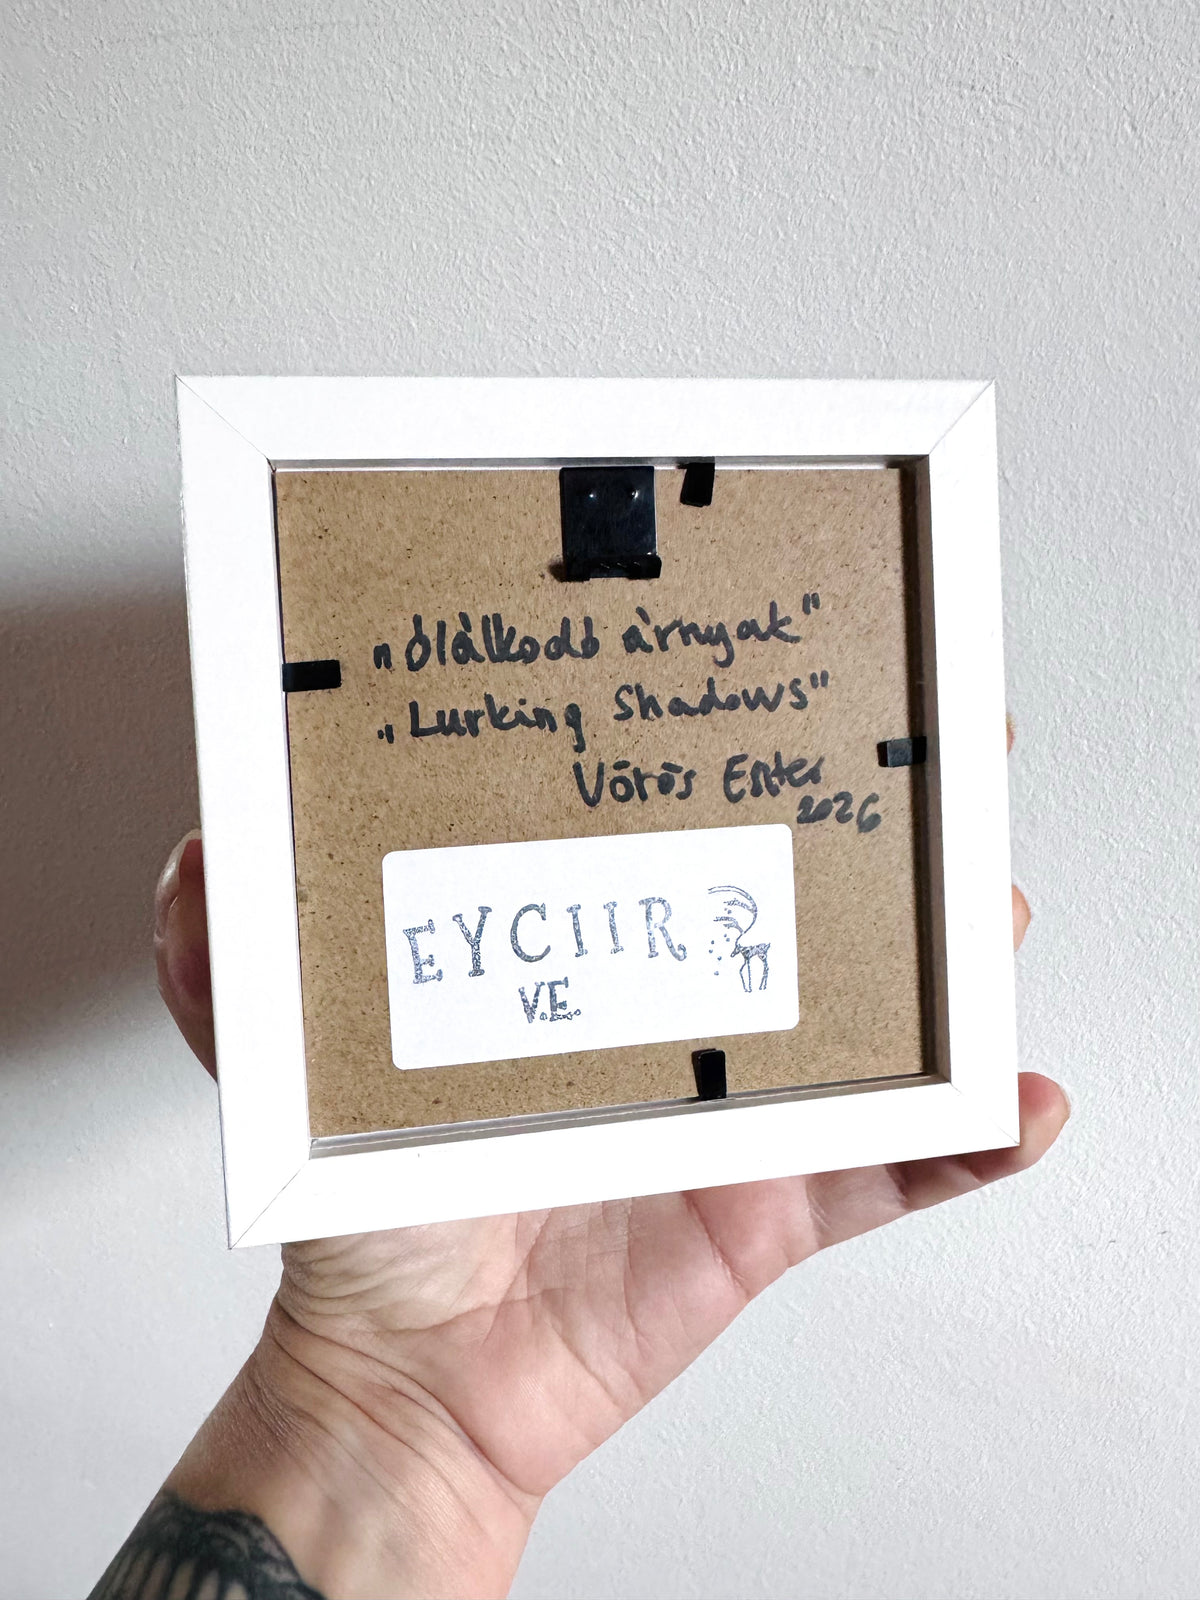 „Ólálkodó árnyak"
„Lurking Shadows"
Vörös Eszter
2026
EYCIIR
V.E.